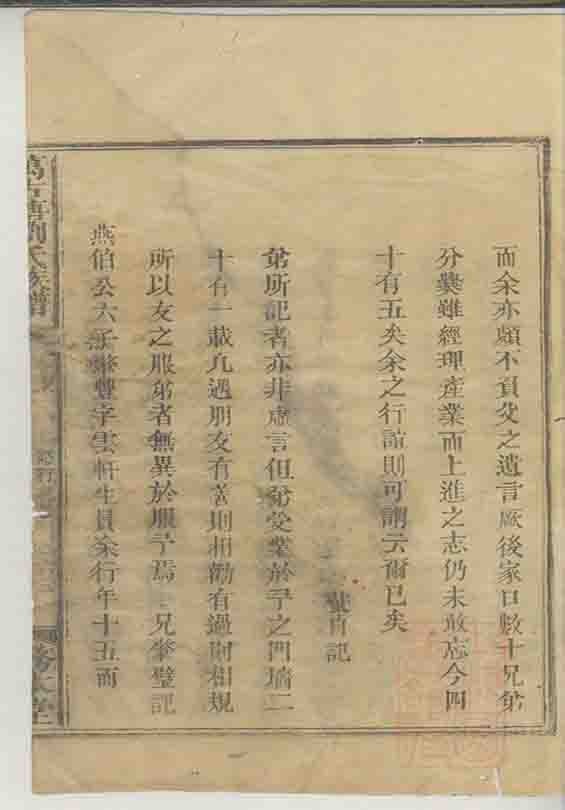 而余亦頗不負父之遺言厥後家口數十兄弟
分爨雖經理產業而上進之志仍未敢忘今四
十有五矣余之行誼則可謂云爾已矣
自記
弟所記者亦非虛言但弟受業於予之門墻二
十有一載凡遇朋友有善則相勸有過則相規
所以友之服弟者無異於服予焉 兄肇璧記
燕伯公六子肇豐字雲軒生員余行年十五而
劉氏族譜